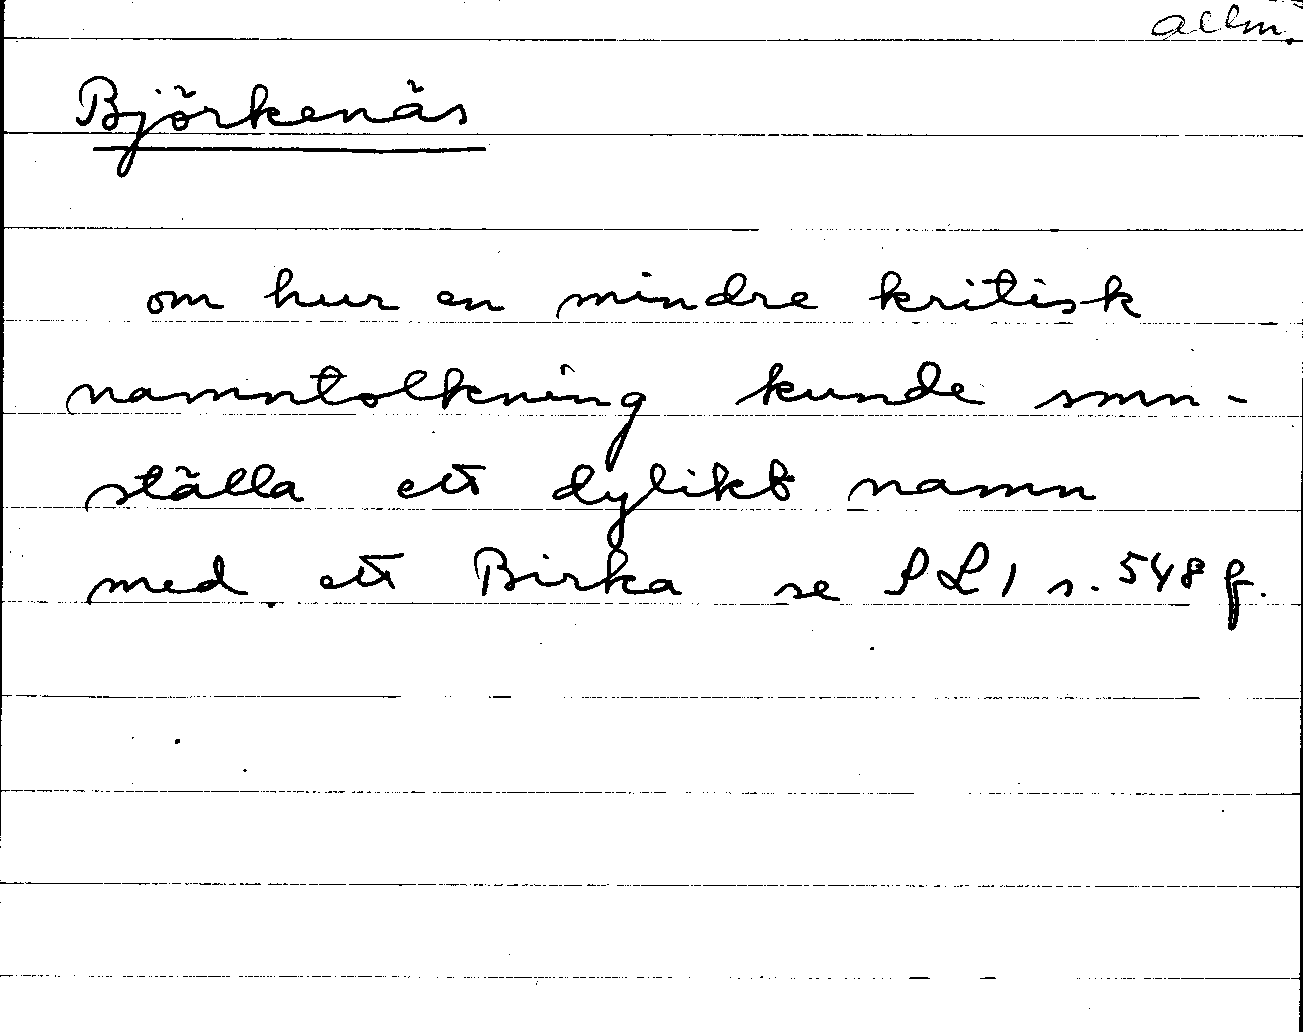 allm.
Björkenäs
om hur en mindre kritisk
namntolkning kunde smn-
ställa ett dylikt namn
med ett Birka se PL 1 s. 548 f.